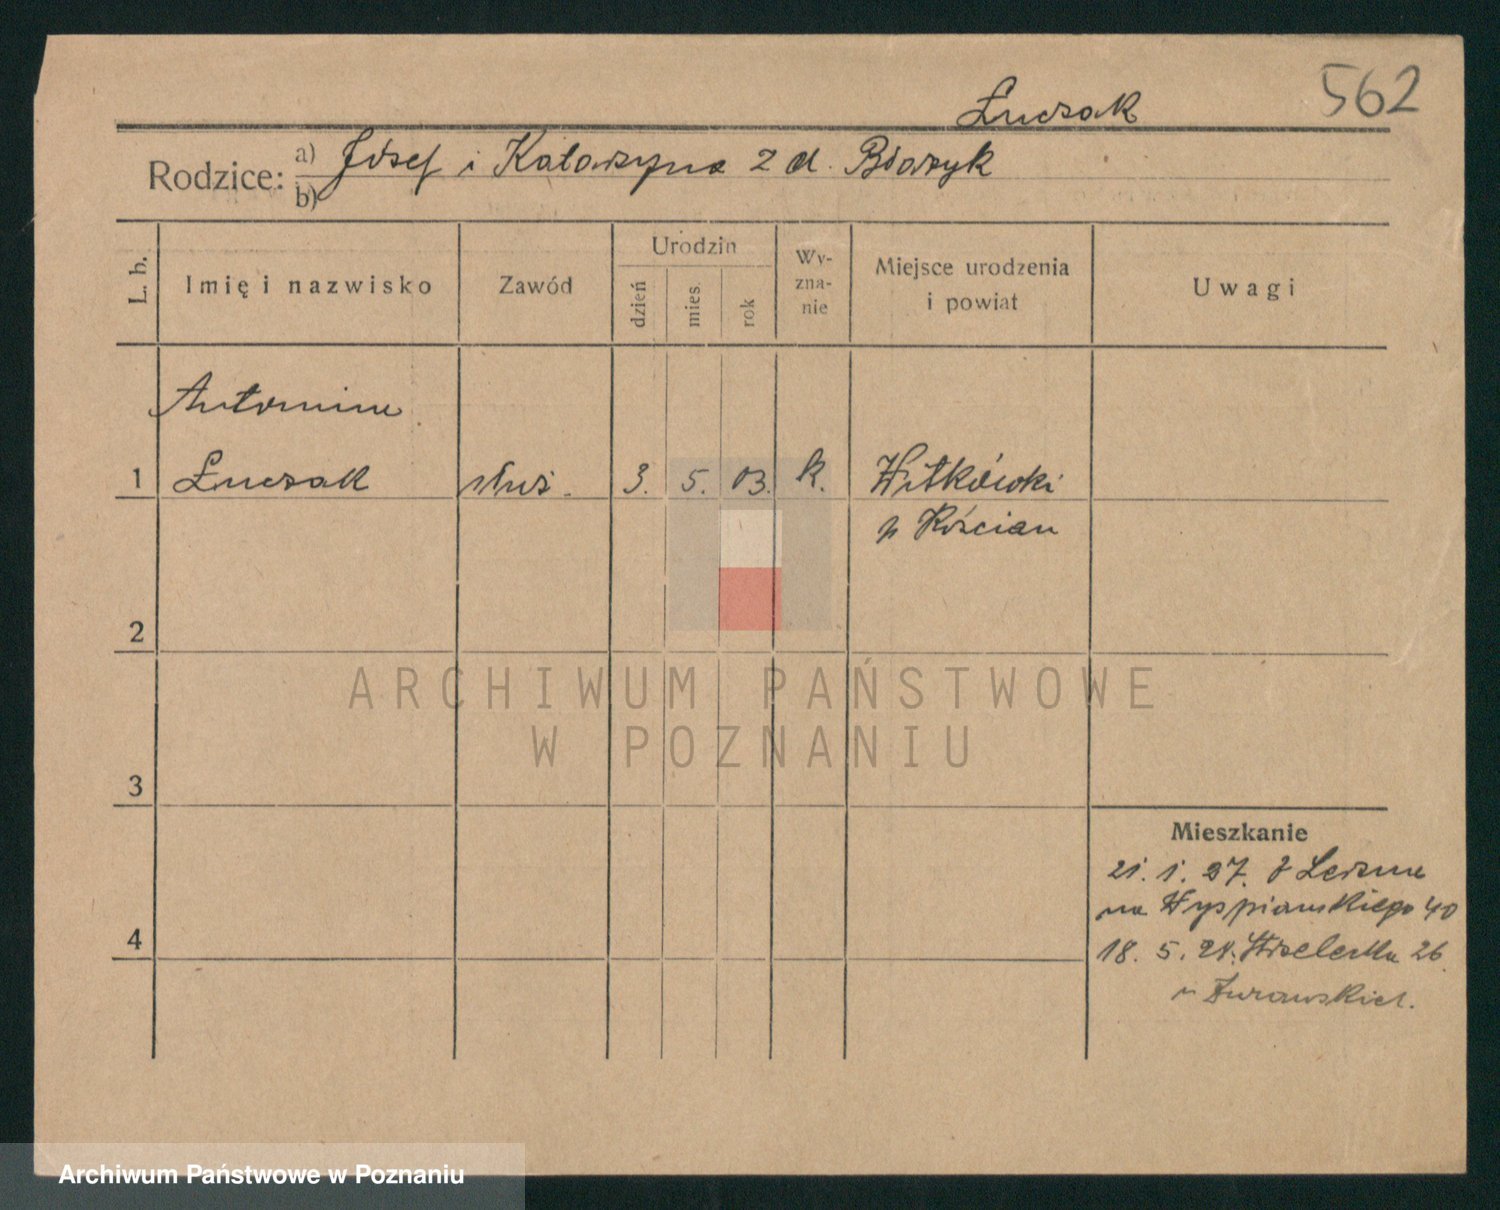 562
Łuczak
Rodzice: a) Józef i Katarzyna z d.
b)
L. b.
Imię i nazwisko
Zawód
Urodzin
dzień
mies.
rok
Wy-
zna-
nie
Miejsce urodzenia
i powiat
Uwagi
Antonina
1 Łuczak służ. 3. 5. 03. k. Witkówki
p Kościan
2
3
4
Mieszkanie
21. 1. 27. z Leszna
na Wyspiańskiego 40
18. 5. 26
u Żurawskich.
ARCHIWUM PAŃSTWOWE
W POZNANIU
Archiwum Państwowe w Poznaniu